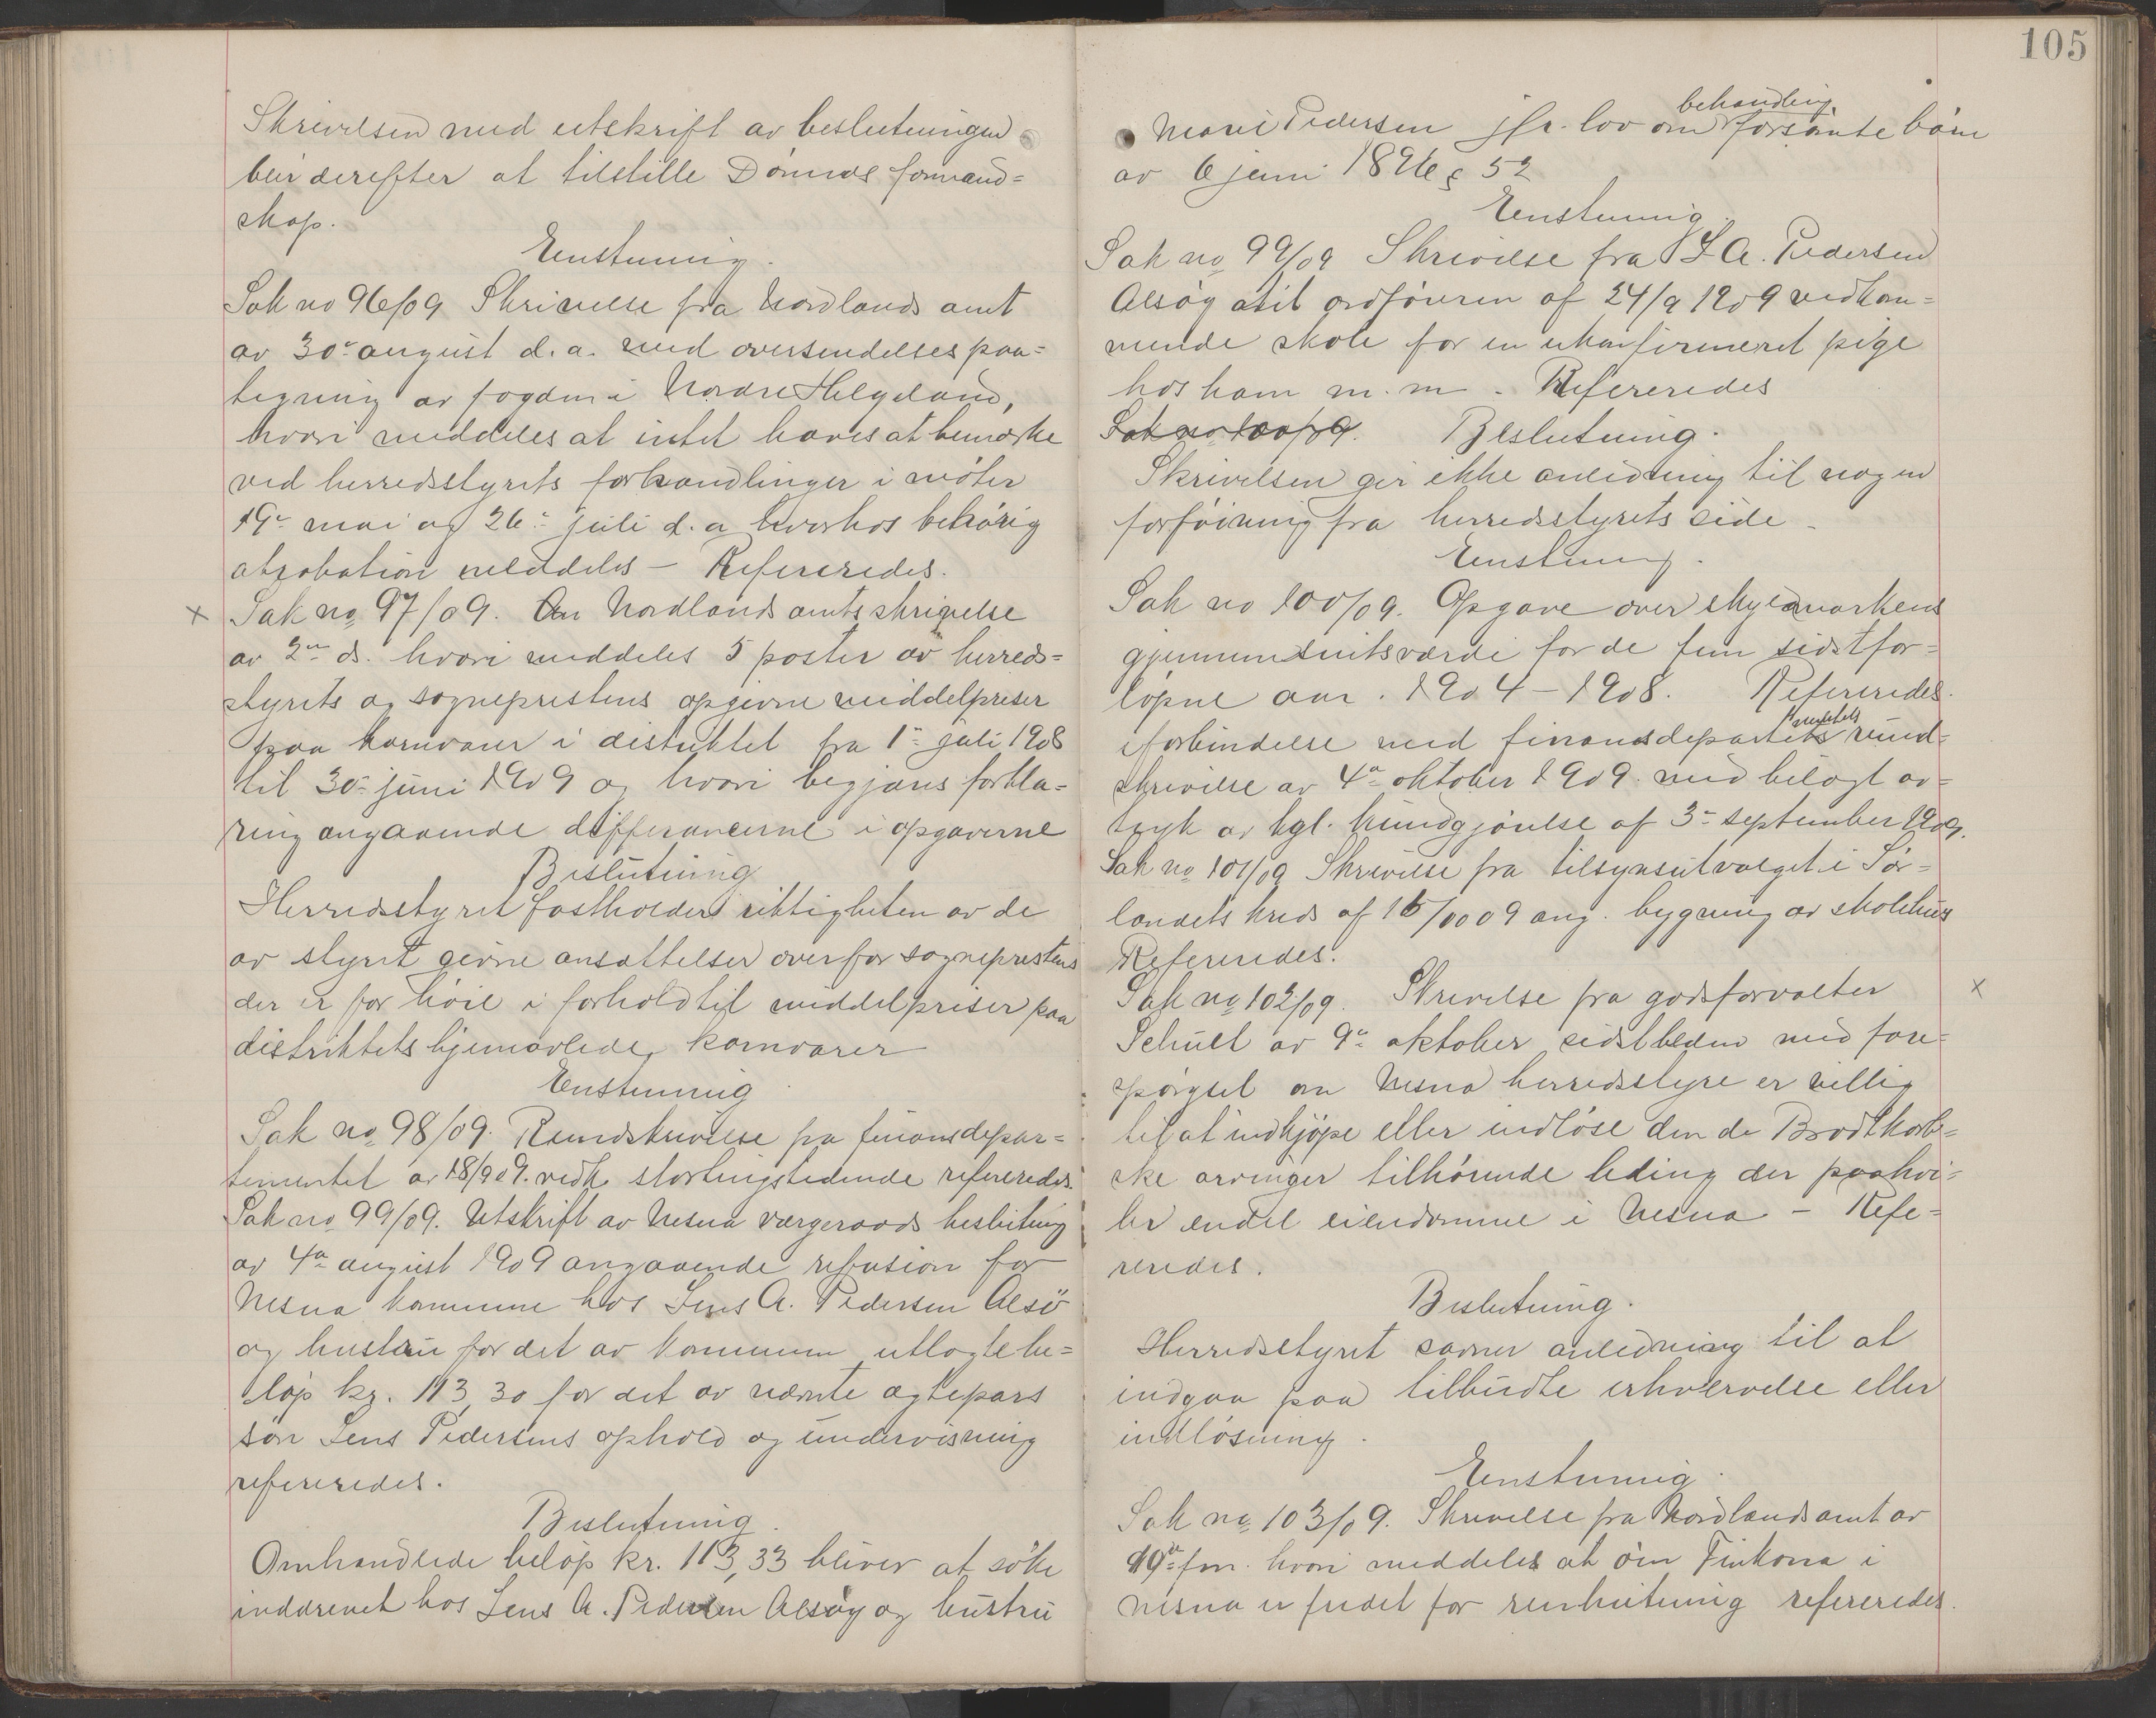 Skrivelsen med utskrift av beslutningen
blir derefter at tilstille Dönnes formand=
skap.
Enstemmig.
Sak no 96/09 Skrivelse fra Nordlands amt
av 30te august d.a. med oversendelsespaa=
tegning av fogden i Nordre Helgeland,
hvori meddeles at intet haves at bemerke
ved herredsstyrets forhandlinger i möter
19de mai og 26de juli d.a. hvorhos behörig
aprobation meddeles – Refereredes.
x Sak no 97/09. Nordlands amts skrivelse
av 2den ds. hvori meddeles 5 poster av herreds=
styrets og sogneprestens opgivne middelpriser
paa kornvarer i distriktet fra 1ste juli 1908
til 30te juni 1909 og hvori begjæres forkla=
ring angaaende differancerne i opgaverne
Beslutning
Herredsstyret fastholder riktigheten av de
av styret givne ansættelser overfor sogneprestens
der er for höie i forhold til middelpriser paa
distriktets hjemavlede kornvarer
Enstemmig
Sak no 98/09. Rundskrivelse fra finansdepar=
tementet av 18/9 09. vedk. stortingstidende refereredes.
Sak no 99/09. Utskrift av Nesna værgeraads beslutning
av 4de august 1909 angaaende refusion for
Nesna kommune hos Jens A. Pedersen Alsö
og hustru for det av kommunen utlagte be=
löp kr. 113,30 for det av nævnte ægtepars
sön Jens Pedersens ophold og undervisning
refereredes.
Beslutning.
Omhandlede belöp kr. 113,33 bliver at söke
inddrevet hos Jens A. Pedersen Alsöy og hustru
105
behandling
Marie Pedersen jfr. lov om forsömte börn
av 6 juni 1896 § 52
Enstemmig.
Sak no 99/09 Skrivelse fra J A. Pedersen
Alsöy til ordföreren af 24/9 1909 vedkom=
mende skole for en ukonfirmeret pige
hos ham m.m. Refereredes
Sak no 100/09. Beslutning.
Skrivelsen gir ikke anledning til nogen
forföining fra herredsstyrets side.
Enstemmig.
Sak no 100/09. Opgave over skyldmarkens
gjennemsnitsværdi for de fem sidstfor=
löpne aar. 1904–1908. Refereredes.
mentets
i forbindelse med finansdepartets rund=
skrivelse av 4de oktober 1909 med bilagt av=
tryk av kgl. kundgjörelse af 3de september 1909.
Sak no 101/09 Skrivelse fra tilsynsutvalget i Sör=
landets kreds af 15/10 09 ang. bygning av skolehus
Refereredes.
Sak no 102/09. Skrivelse fra godsforvalter x
Schult av 9de oktober sidstleden med fore=
spörgsel om Nesna herredsstyre er villig
til at indkjöpe eller indlöse den de Brodtkorb=
ske arvinger tilhörende leding der paahvi=
ler endel eiendomme i Nesna – Refe=
reredes.
Beslutning.
Herredsstyret savner anledning til at
indgaa paa tilbudte erhvervelse eller
indlösning.
Enstemmig.
Sak no 103/09. Skrivelse fra Nordlands amt av
19de fm. hvori meddeles at öen Finkona i
Nesna er fredet for renbeitning refereredes.